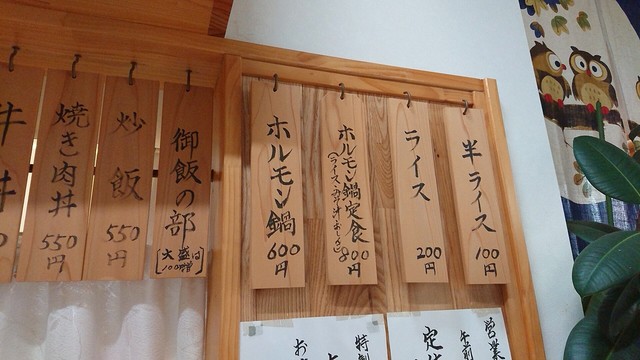 半ライス
100円
ライス
200円
ホルモン鍋定食
800円
ホルモン鍋
600円
御飯の部
大盛は
100円増
炒飯
550円
焼き肉丼
550円
営業
午前
定休
特製